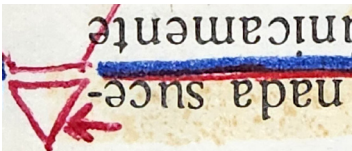 nada suce-
nicamente